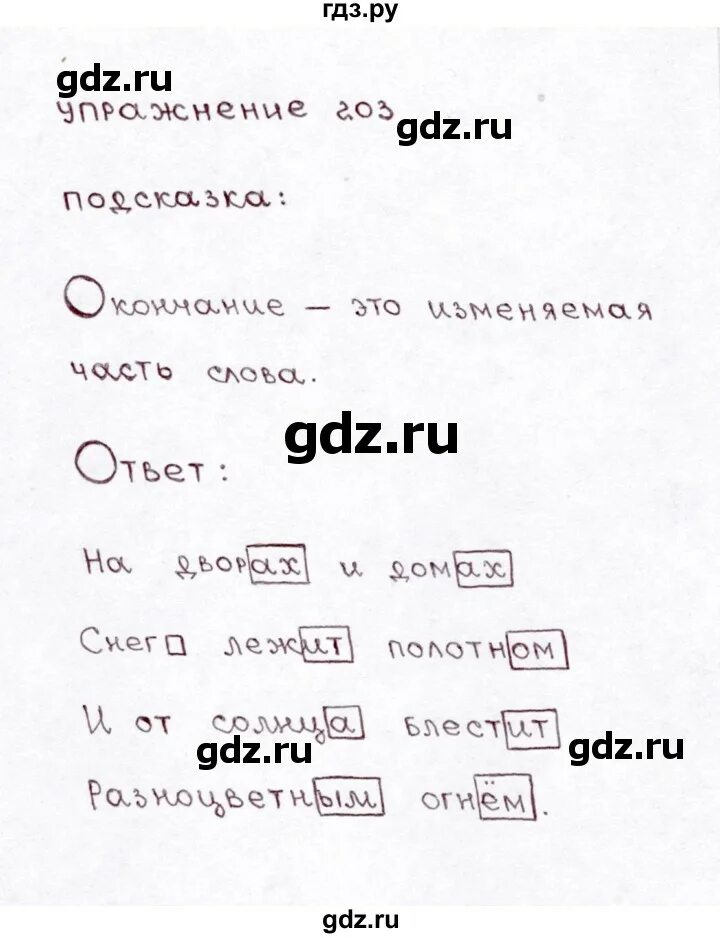 гдз.ру
gdz.ru
упражнение 203
gdz.ru
подсказка:
Окончание – это изменяемая
часть слова.
gdz.ru
Ответ:
На дворах и домах
Снег лежит полотном
И от солнца блестит
gdz.ru gdz.ru
Разноцветным огнём.
gdz.ru